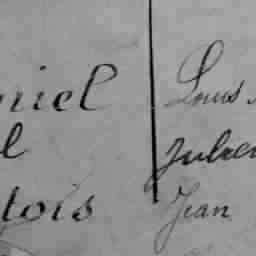 niel
l
tois
Louis
Julien
Jean